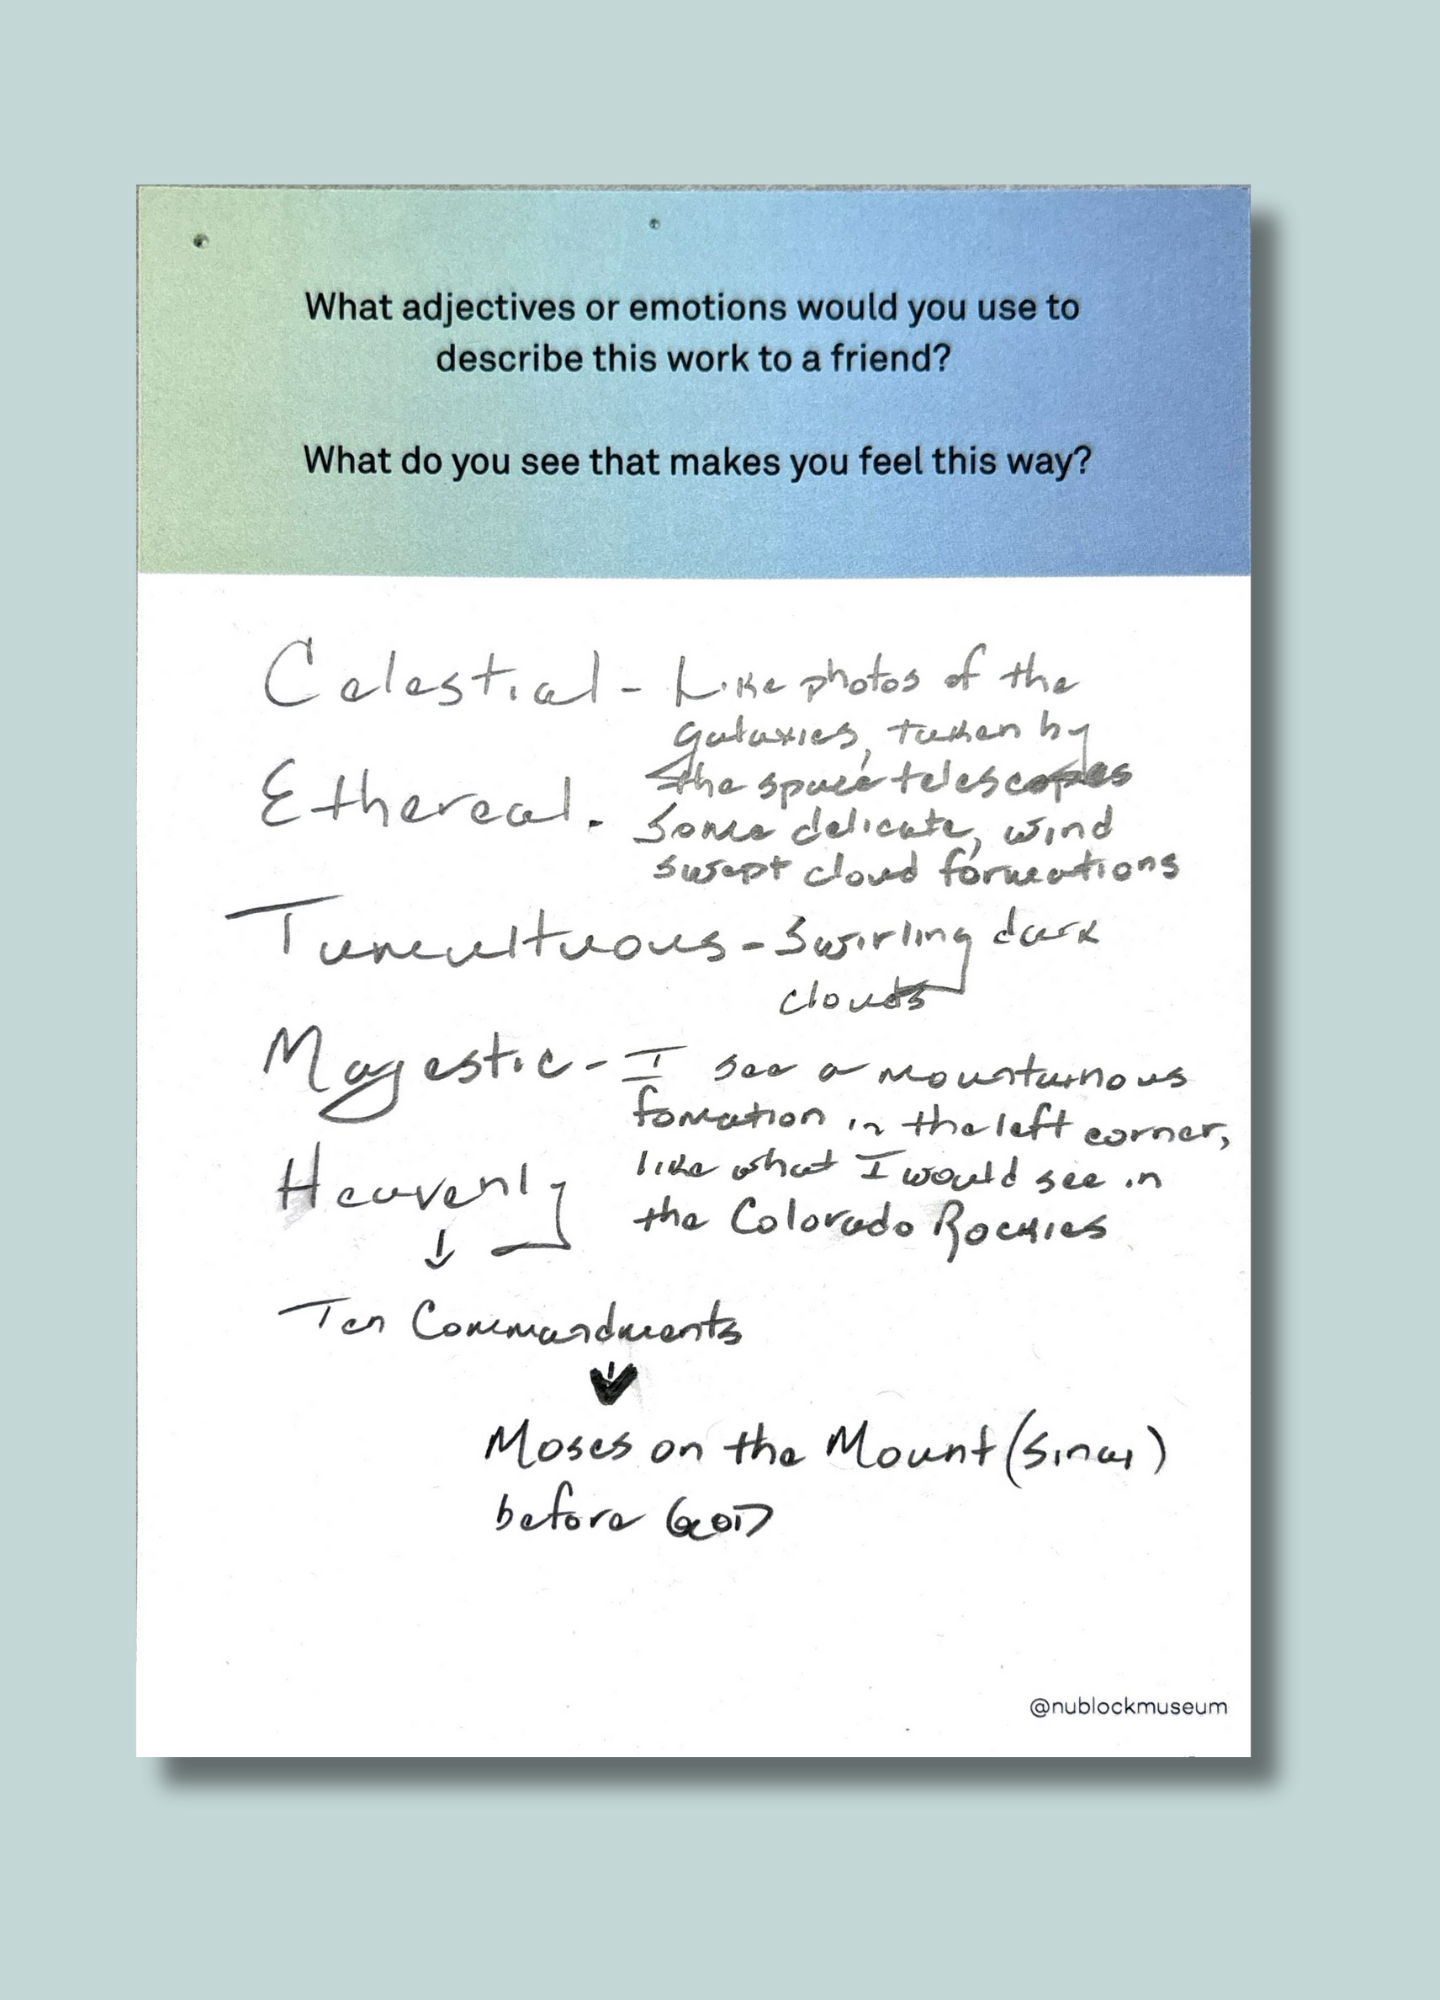 What adjectives or emotions would you use to
describe this work to a friend?
What do you see that makes you feel this way?
Celestial - Like photos of the
galaxies, taken by
the space telescopes
Ethereal. Some delicate, wind
swept cloud formations
Tumultuous - Swirling dark
clouds
Magestic - I see a mountainous
fomation in the left corner,
like what I would see in
the Colorado Rockies
Heavenly
↓
Ten Commandments
↓
Moses on the Mount (Sinai)
before GOD
@nublockmuseum